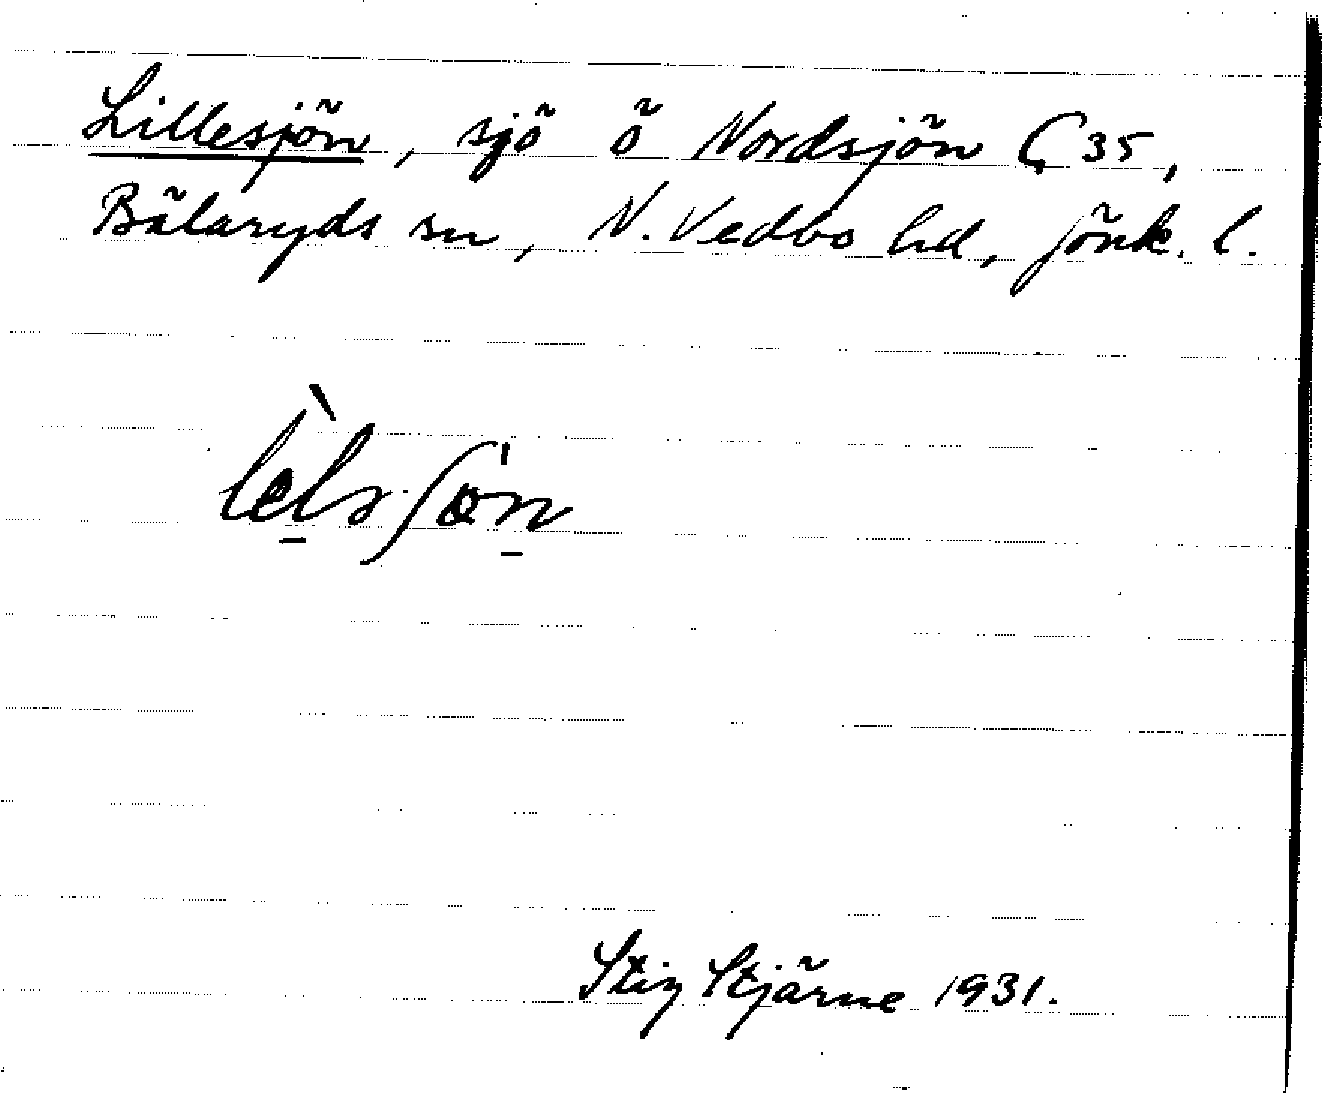 Lillesjön, sjö ö Nordsjön Ç 35,
Bälaryds sn, N. Vedbo hd, Jönk. l.
Stig Stjärne 1931.